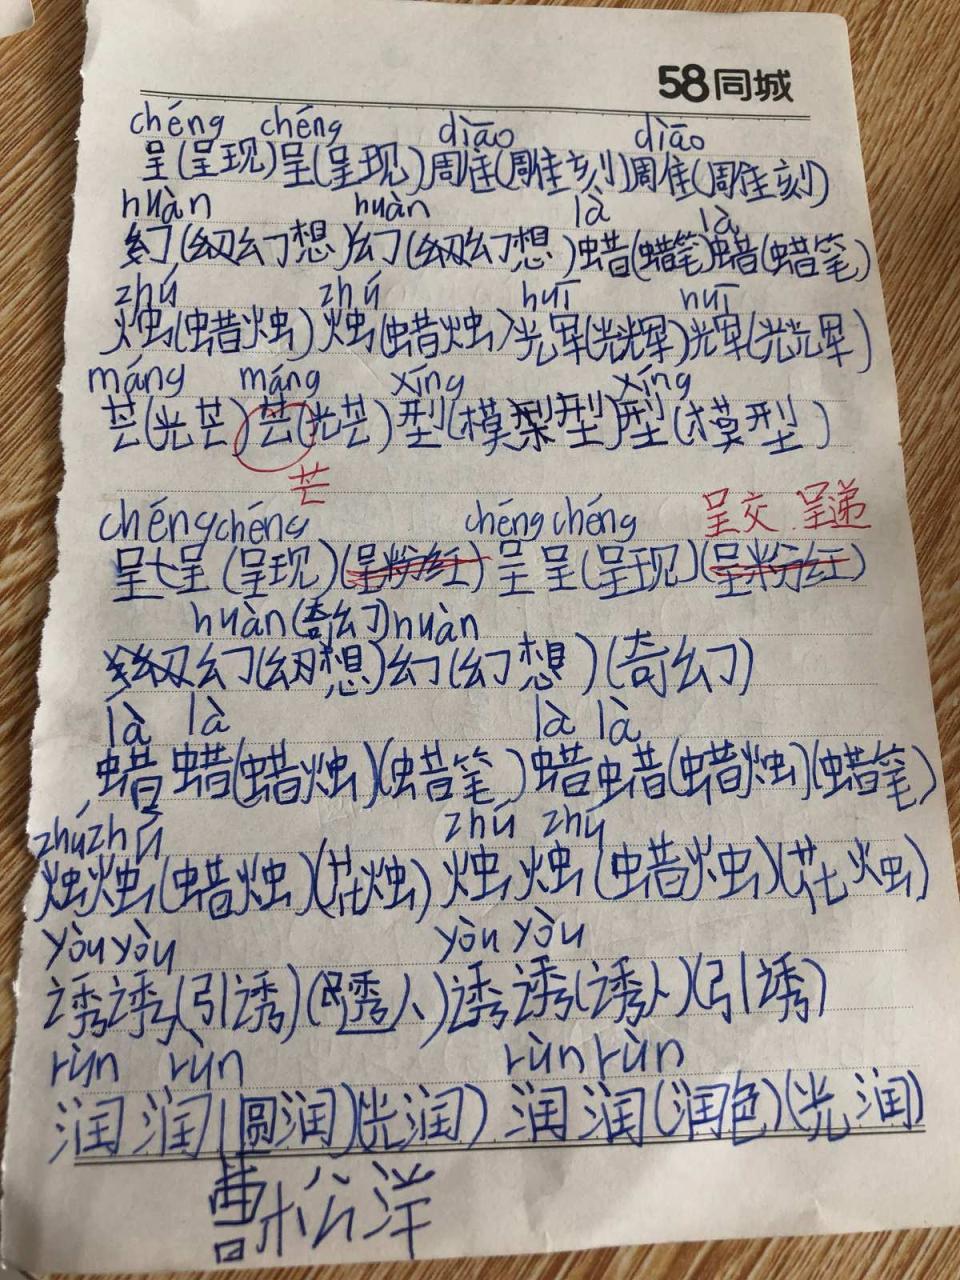 58同城
chéng chéng dīāo dīāo
呈(呈现)呈(呈现)雕(雕刻)雕(雕刻)
huàn huàn là là
幻(幻想)幻(幻想)蜡(蜡笔)蜡(蜡笔)
zhú zhú huī huī
烛(蜡烛)烛(蜡烛)辉(光辉)辉(光辉)
máng máng xíng xíng
芒(光芒)芒(光芒)型(模型)型(模型)
芒
chéng chéng chéng chéng 呈交 呈递
呈呈(呈现)(呈粉红)呈呈(呈现)(呈粉红)
huàn(奇幻)huàn
幻(幻想)幻(幻想)(奇幻)
là là là là
蜡蜡(蜡烛)(蜡笔)蜡蜡(蜡烛)(蜡笔)
zhú zhú zhú zhú
烛烛(蜡烛)(花烛)烛烛(蜡烛)(花烛)
yòu yòu yòu yòu
诱诱(引诱)(诱人)诱诱(诱人)(引诱)
rùn rùn rùn rùn
润润(圆润)(光润)润润(润色)(光润)
曹松洋